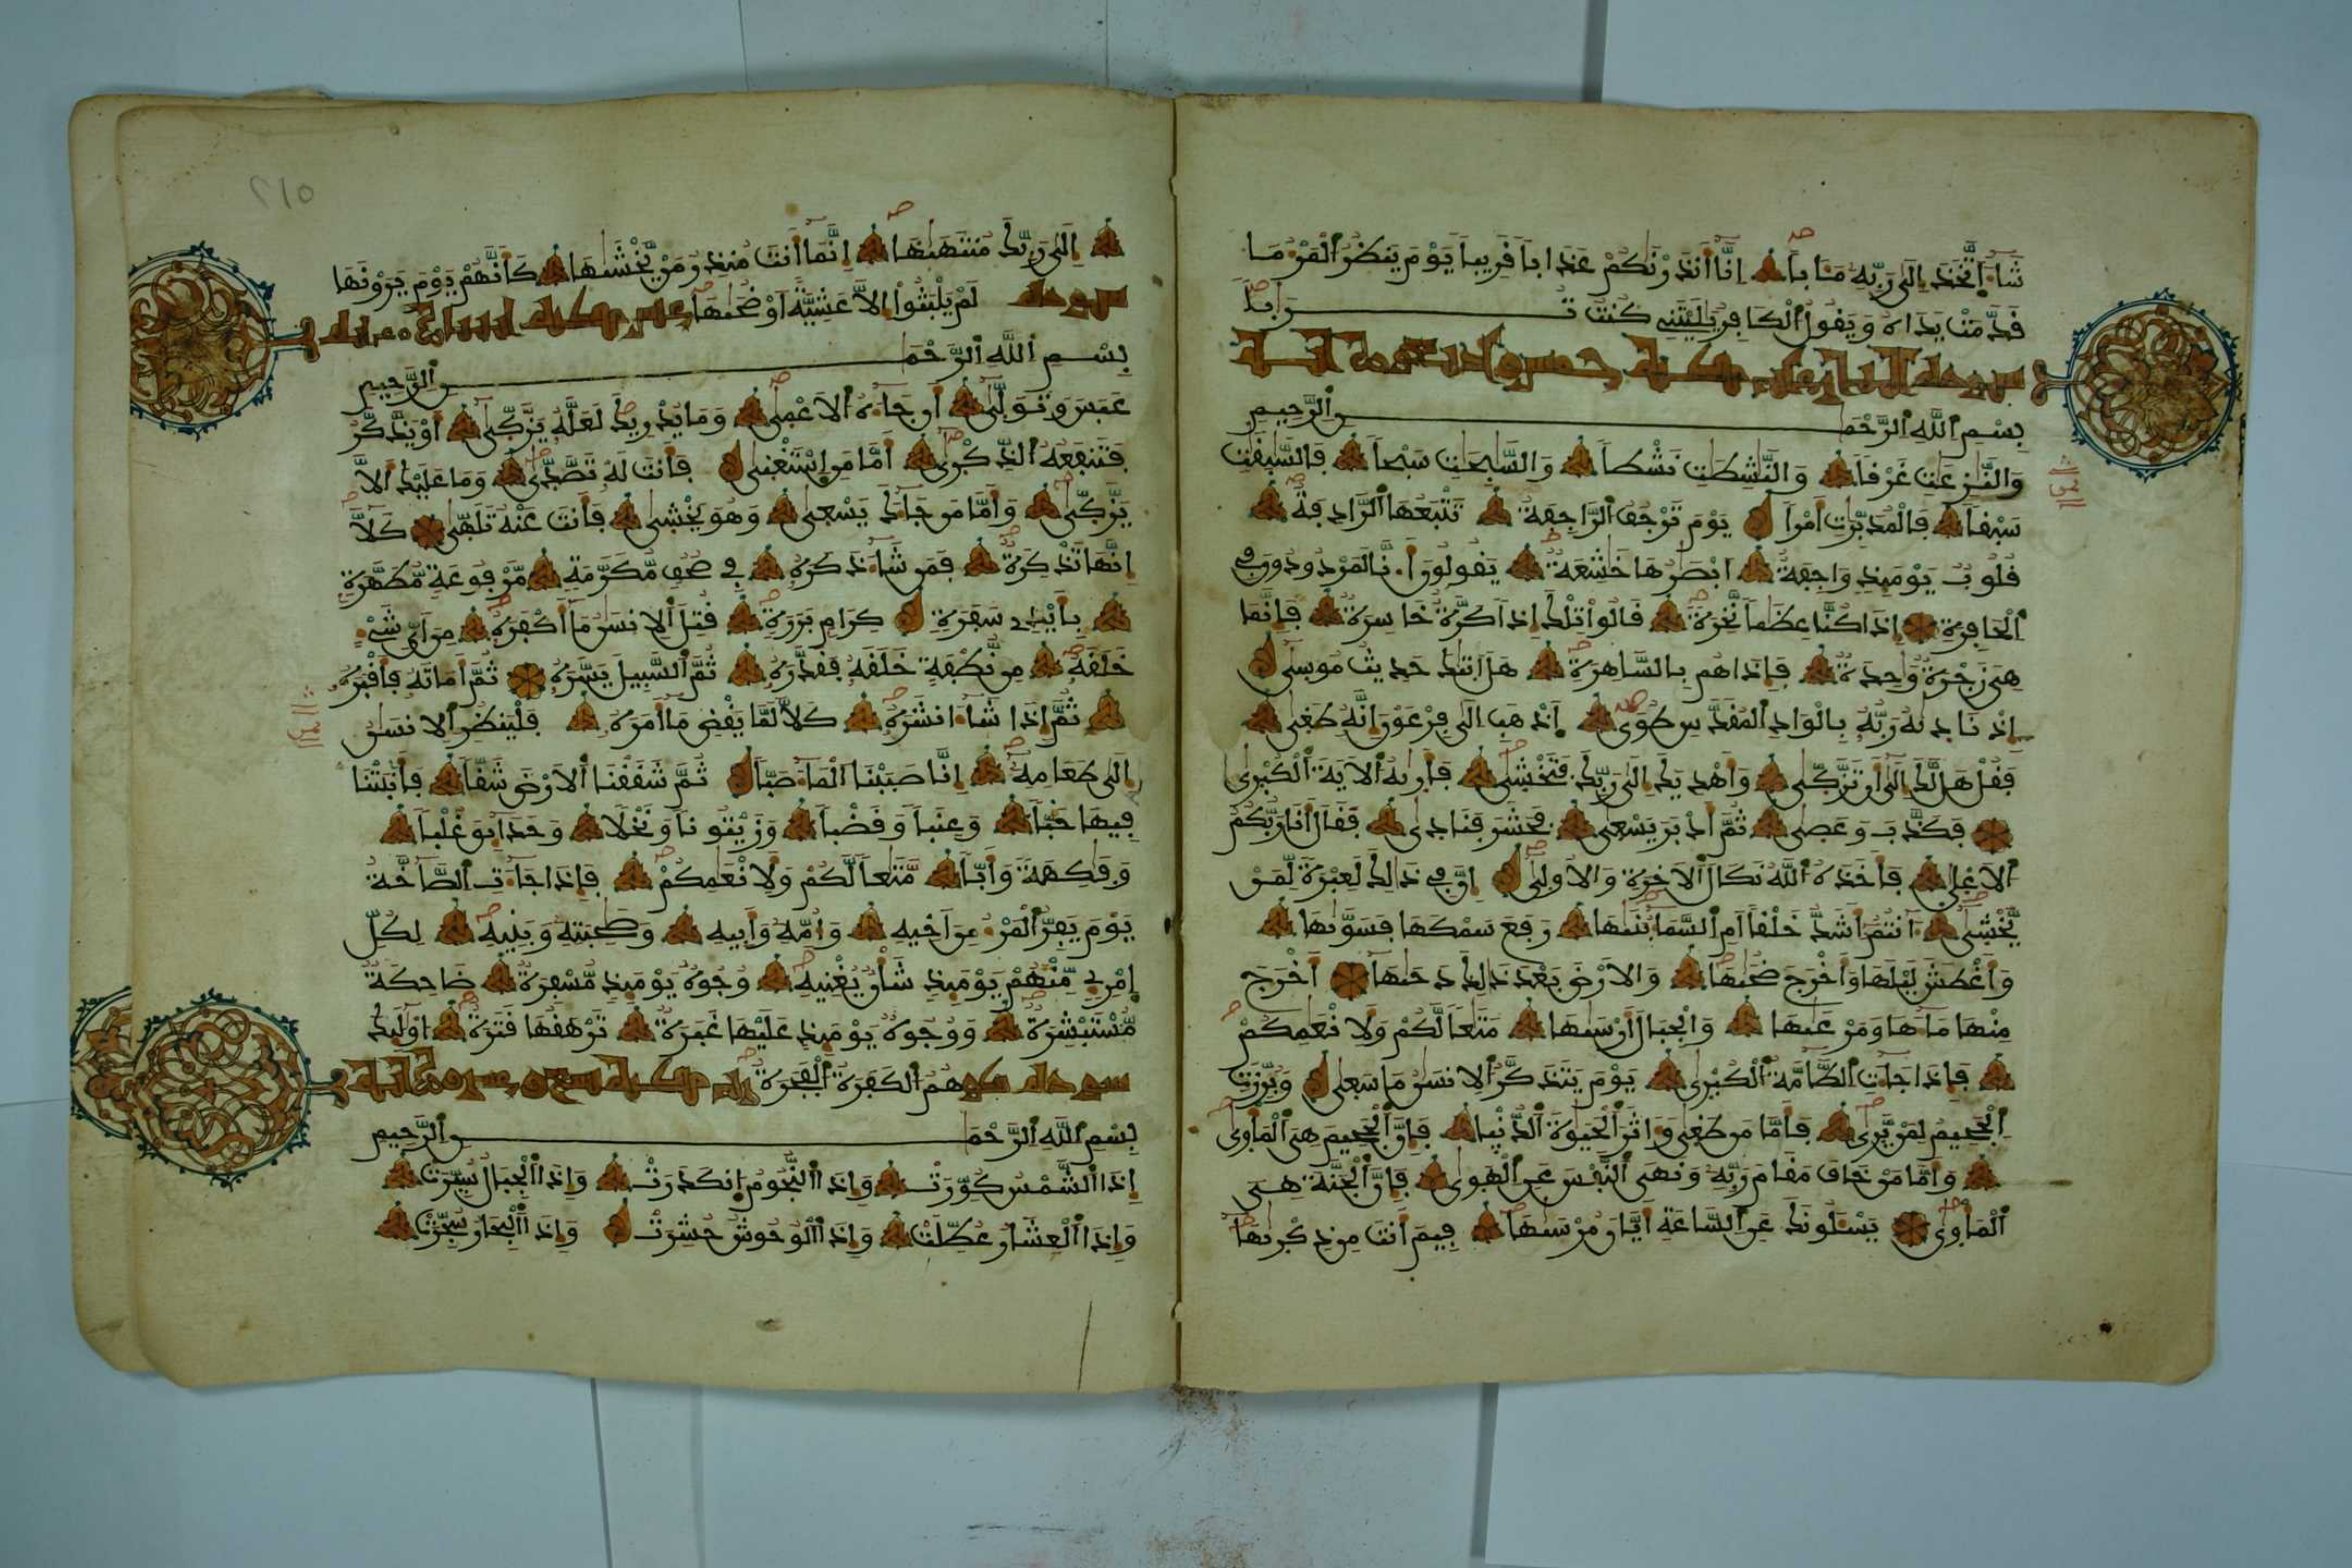 شَآءَ اَتَّخَذَ إِلَىٰ رَبِّهِۦ مَـَٔاباً إِنَّآ أَنذَرْنَٰكُمْ عَذَاباً قَرِيباً يَوْمَ يَنظُرُ اُلْمَرْءُ مَا
قَدَّمَتْ يَدَاهُ وَيَقُولُ اُلْكَافِرُ يَٰلَيْتَنِے كُنتُ تُرَٰباً
سورة النازعات مكية خمس وأربعون آية
بِسْمِ اِللَّهِ اِلرَّحْمَٰنِ اِلرَّحِيمِ
وَالنَّٰزِعَٰتِ غَرْقاً وَالنَّٰشِطَٰتِ نَشْطاً وَالسَّٰبِحَٰتِ سَبْحاً فَالسَّٰبِقَٰتِ
سَبْقاً فَالْمُدَبِّرَٰتِ أَمْراً يَوْمَ تَرْجُفُ اُلرَّاجِفَةُ تَتْبَعُهَا اَلرَّادِفَةُ
قُلُوبٌ يَوْمَئِذٍ وَاجِفَةٌ اَبْصَٰرُهَا خَٰشِعَةٌ يَقُولُونَ أَ.نَّا لَمَرْدُودُونَ فِے
اِلْحَافِرَةِ إِذَا كُنَّا عِظَٰماً نَّخِرَةً قَالُواْ تِلْكَ إِذاً كَرَّةٌ خَاسِرَةٌ فَإِنَّمَا
هِىَ زَجْرَةٌ وَٰحِدَةٌ فَإِذَا هُم بِالسَّاهِرَةِ هَلَ اَتَىٰكَ حَدِيثُ مُوسِىٰٓ
إِذْ نَادِىٰهُ رَبُّهُۥ بِالْوَادِ اِلْمُقَدَّسِ طُوَى اَ۪ذْهَبِ اِلَىٰ فِرْعَوْنَ إِنَّهُۥ طَغِىٰ
فَقُلْ هَل لَّكَ إِلَىٰٓ أَن تَزَّكِّىٰ وَأَهْدِيَكَ إِلَىٰ رَبِّكَ فَتَخْشِىٰ فَأَرِىٰهُ اُلَايَةَ اَلْكُبْرِىٰ
فَكَذَّبَ وَعَصِىٰ ثُمَّ أَدْبَرَ يَسْعِىٰ فَحَشَرَ فَنَادِىٰ فَقَالَ أَنَا رَبُّكُمُ
اُلَاعْلِىٰ فَأَخَذَهُ اُللَّهُ نَكَالَ اَلَاخِرَةِ وَالُاولِىٰٓ إِنَّ فِے ذَٰلِكَ لَعِبْرَةً لِّمَنْ
يَّخْشِىٰٓ ءَآنتُمُۥٓ أَشَدُّ خَلْقاً اَمِ اِلسَّمَآءُ بَنَىٰهَا رَفَعَ سَمْكَهَا فَسَوَّىٰهَا
وَأَغْطَشَ لَيْلَهَا وَأَخْرَجَ ضُحَىٰهَا وَالَارْضَ بَعْدَ ذَٰلِكَ دَحَىٰهَآ أَخْرَجَ
مِنْهَا مَآءَهَا وَمَرْعَىٰهَا وَالْجِبَالَ أَرْسَىٰهَا مَتَٰعاً لَّكُمْ وَلِأَنْعَٰمِكُمْ
فَإِذَا جَآءَتِ اِلطَّآمَّةُ اُلْكُبْرِىٰ يَوْمَ يَتَذَكَّرُ اُلِانسَٰنُ مَا سَعِىٰ وَبُرِّزَتِ
اِلْجَحِيمُ لِمَنْ يَّرِىٰ فَأَمَّا مَن طَغِىٰ وَءَاثَرَ اَلْحَيَوٰةَ اَلدُّنْيِا فَإِنَّ اَلْجَحِيمَ هِىَ اَلْمَأْوِىٰ
وَأَمَّا مَنْ خَافَ مَقَامَ رَبِّهِۦ وَنَهَى اَلنَّفْسَ عَنِ اِلْهَوِىٰ فَإِنَّ اَلْجَنَّةَ هِىَ
اَلْمَأْوِىٰ يَسْـَٔلُونَكَ عَنِ اِلسَّاعَةِ أَيَّانَ مُرْسَىٰهَا فِيمَ أَنتَ مِن ذِكْرِىٰهَآ
٢١٥
إِلَىٰ رَبِّكَ مُنتَهَىٰهَآ إِنَّمَآ أَنتَ مُنذِرُ مَنْ يَّخْشَىٰهَا كَأَنَّهُمْ يَوْمَ يَرَوْنَهَا
لَمْ يَلْبَثُوٓاْ إِلَّا عَشِيَّةً اَوْ ضُحَىٰهَا
سورة عبس مكية
بِسْمِ اِللَّهِ اِلرَّحْمَٰنِ اِلرَّحِيمِ
عَبَسَ وَتَوَلِّىٰٓ أَن جَآءَهُ اُلَاعْمِىٰ وَمَا يُدْرِيكَ لَعَلَّهُۥ يَزَّكِّىٰٓ أَوْ يَذَّكَّرُ
فَتَنفَعُهُ اُلذِّكْرِىٰٓ أَمَّا مَنِ اِسْتَغْنِىٰ فَأَنتَ لَهُۥ تَصَّدِّىٰ وَمَا عَلَيْكَ أَلَّا
يَزَّكِّىٰ وَأَمَّا مَن جَآءَكَ يَسْعِىٰ وَهُوَ يَخْشِىٰ فَأَنتَ عَنْهُ تَلَهِّىٰ كَلَّآ
إِنَّهَا تَذْكِرَةٌ فَمَن شَآءَ ذَكَرَهُۥ فِے صُحُفٍ مُّكَرَّمَةٍ مَّرْفُوعَةٍ مُّطَهَّرَةٍۭ
بِأَيْدِے سَفَرَةٍ كِرَامٍۭ بَرَرَةٍ قُتِلَ اَلِانسَٰنُ مَآ أَكْفَرَهُۥ مِنَ اَيِّ شَےْءٍ
خَلَقَهُۥ مِن نُّطْفَةٍ خَلَقَهُۥ فَقَدَّرَهُۥ ثُمَّ اَلسَّبِيلَ يَسَّرَهُۥ ثُمَّ أَمَاتَهُۥ فَأَقْبَرَهُۥ
ثُمَّ إِذَا شَآءَ انشَرَهُۥ كَلَّا لَمَّا يَقْضِ مَآ أَمَرَهُۥ فَلْيَنظُرِ اِلِانسَٰنُ
إِلَىٰ طَعَامِهِۦٓ إِنَّا صَبَبْنَا اَلْمَآءَ صَبّاً ثُمَّ شَقَقْنَا اَلَارْضَ شَقّاً فَأَنۢبَتْنَا
فِيهَا حَبّاً وَعِنَباً وَقَضْباً وَزَيْتُوناً وَنَخْلاً وَحَدَآئِقَ غُلْباً
وَفَٰكِهَةً وَأَبّاً مَّتَٰعاً لَّكُمْ وَلِأَنْعَٰمِكُمْ فَإِذَا جَآءَتِ اِلصَّآخَّةُ
يَوْمَ يَفِرُّ اُلْمَرْءُ مِنَ اَخِيهِ وَأُمِّهِۦ وَأَبِيهِ وَصَٰحِبَتِهِۦ وَبَنِيهِ لِكُلِّ
اِمْرِےٕٖ مِّنْهُمْ يَوْمَئِذٍ شَأْنٌ يُغْنِيهِ وُجُوهٌ يَوْمَئِذٍ مُّسْفِرَةٌ ضَاحِكَةٌ
مُّسْتَبْشِرَةٌ وَوُجُوهٌ يَوْمَئِذٍ عَلَيْهَا غَبَرَةٌ تَرْهَقُهَا قَتَرَةٌ اُوْلَٰٓئِكَ
هُمُ اُلْكَفَرَةُ اُلْفَجَرَةُ
سورة كورت مكية تسع وعشرون آية
بِسْمِ اِللَّهِ اِلرَّحْمَٰنِ اِلرَّحِيمِ
إِذَا اَلشَّمْسُ كُوِّرَتْ وَإِذَا اَلنُّجُومُ اُنكَدَرَتْ وَإِذَا اَلْجِبَالُ سُيِّرَتْ
وَإِذَا اَلْعِشَارُ عُطِّلَتْ وَإِذَا اَلْوُحُوشُ حُشِرَتْ وَإِذَا اَلْبِحَارُ سُجِّرَتْ